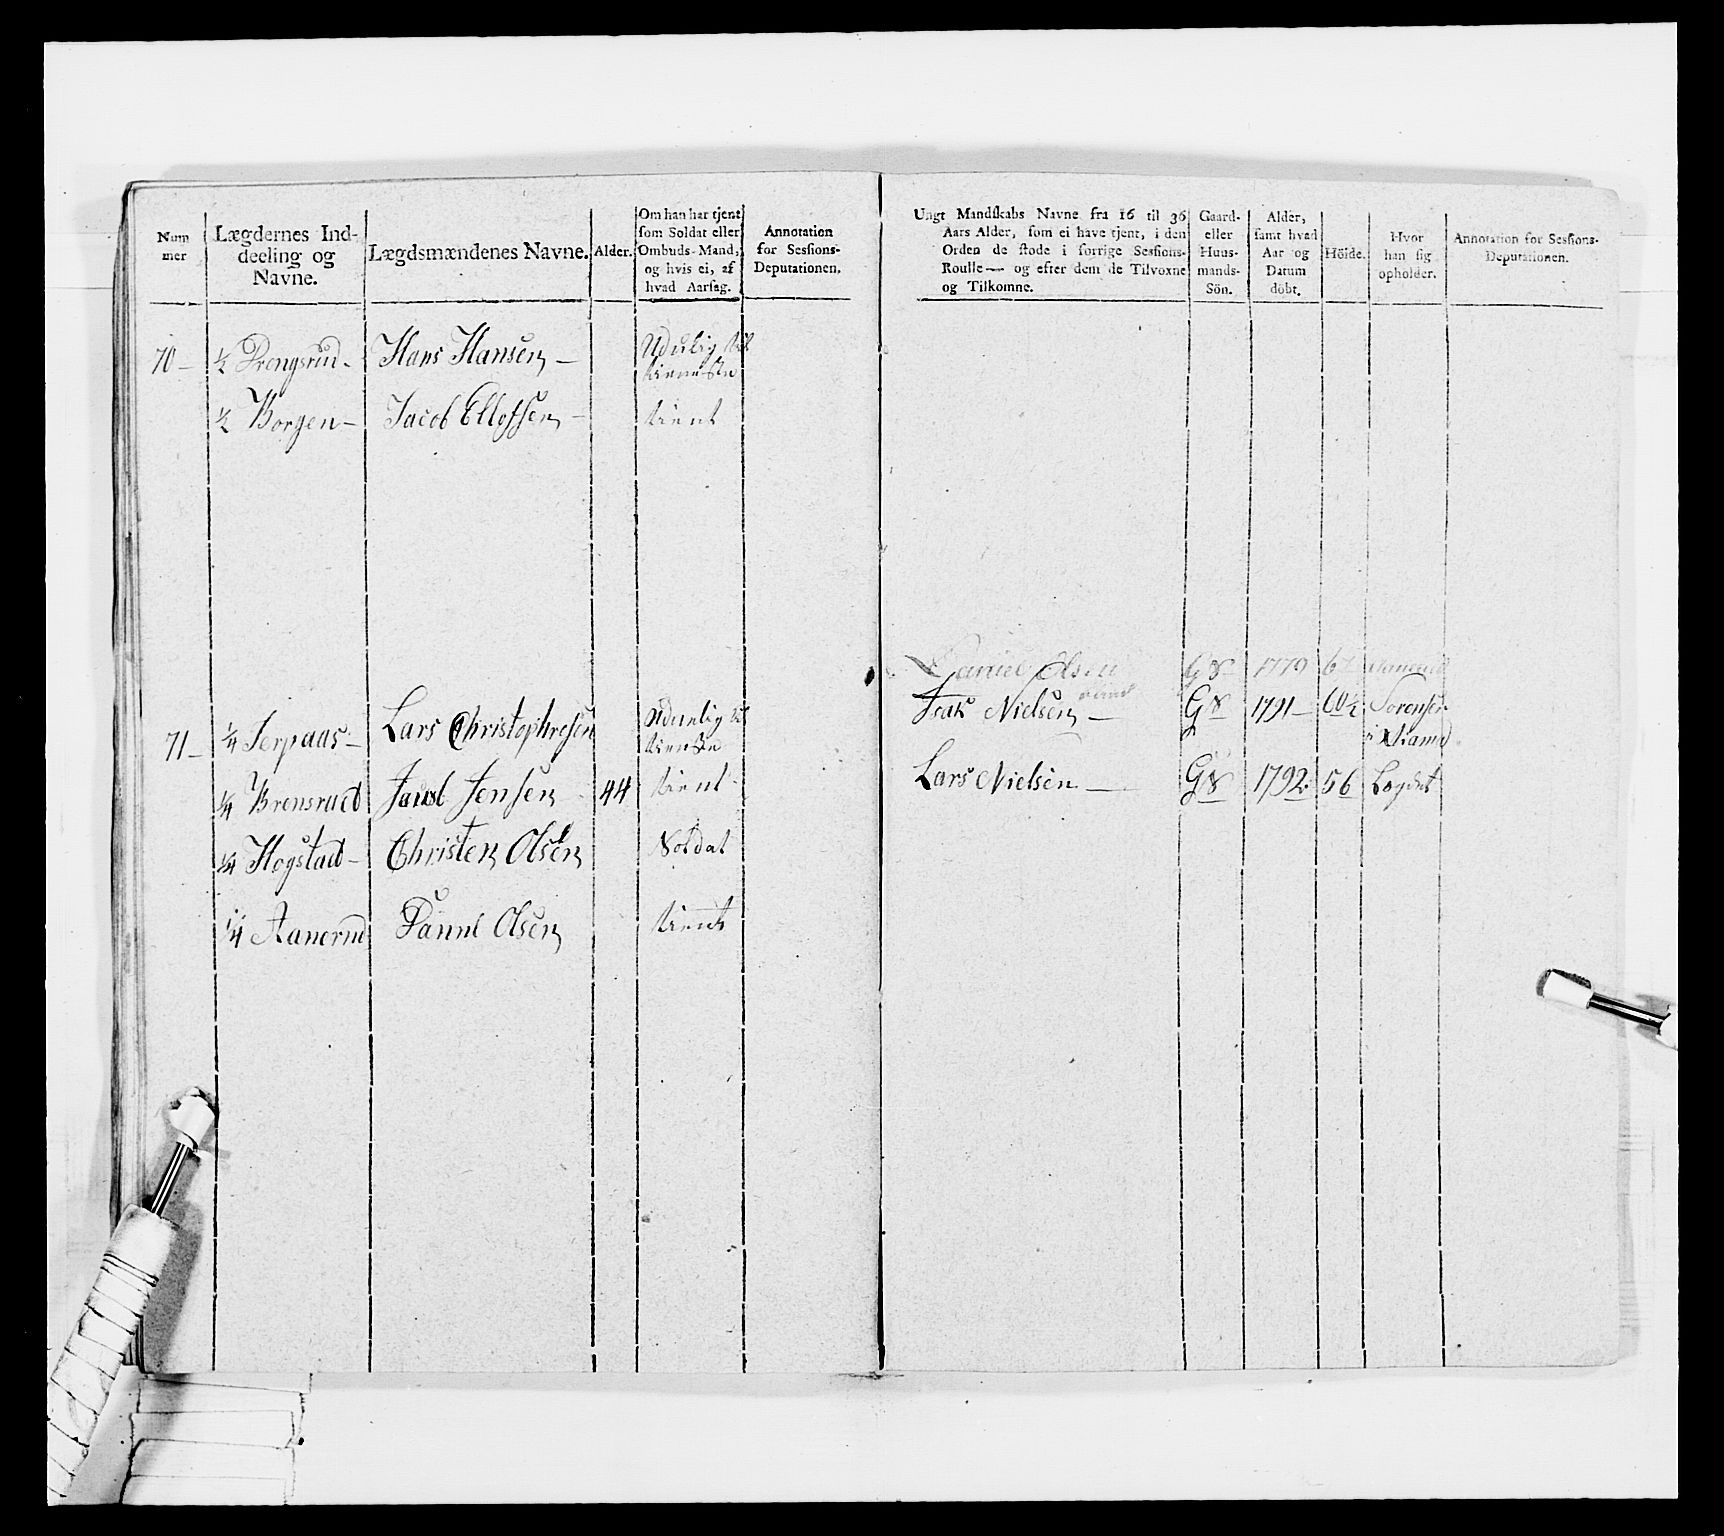 Num
mer
Lægdernes Ind-
deeling og
Navne.
Lægdsmændenes Navne.
Alder.
Om han har tjent
som Soldat eller
Ombuds-Mand,
og hvis ei, af
hvad Aarsag.
Annotation
for Sessions-
Deputationen.
Ungt Mandskabs Navne fra 16 til 36
Aars Alder, som ei have tjent, i den
Orden de stode i forrige Sessions-
Roulle — og efter dem de Tilvoxne
og Tilkomne.
Gaard-
eller
Huus-
mands-
Sön.
Alder,
samt hvad
Aar og
Datum
döbt.
Höide.
Hvor
han sig
opholder.
Annotation for Sessions-
Deputationen.
70 — ½ Drengsrud - Hans Hansen — Udulig til
tieneste
½ Borgen — Jacob Ellefsen — tient
Daniel Olsen GS 1770 Aanerud
71 — ¼ Serpaas — Lars Christophersen Udulig til
tieneste
Isak Nielsen — GS 1791 — 60½ Sorenser
¼ Brensrued Jacob Jensen 44 tient
Lars Nielsen — GS 1792 56 Lægdet
¼ Hogstad — Christen Olsen Soldat
¼ Aanerud Daniel Olsen tient